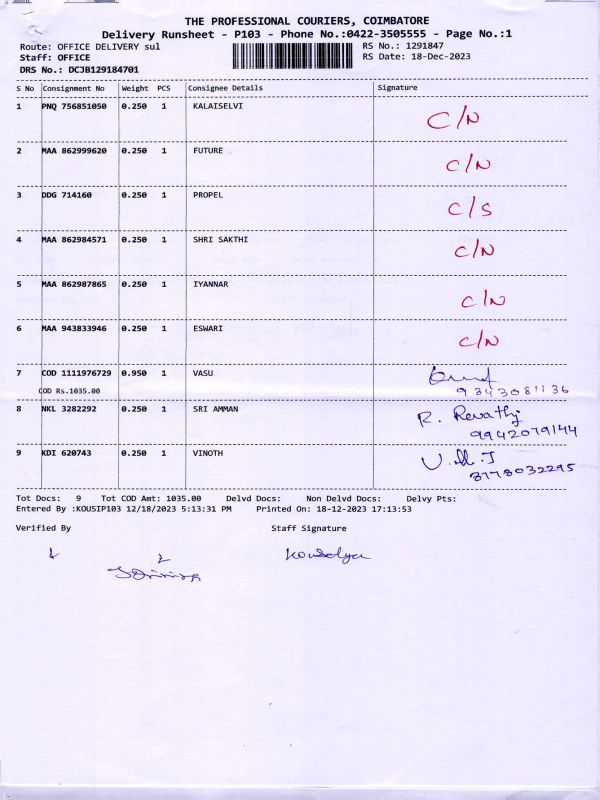 THE PROFESSIONAL COURIERS, COIMBATORE
Delivery Runsheet - P103 - Phone No.:0422-3505555 - Page No.:1
Route: OFFICE DELIVERY sul RS No.: 1291847
Staff: OFFICE RS Date: 18-Dec-2023
DRS No.: DCJB129184701
S No Consignment No Weight PCS Consignee Details Signature
1 PNQ 756851050 0.250 1 KALAISELVI C/N
2 MAA 862999620 0.250 1 FUTURE C/N
3 DDG 714160 0.250 1 PROPEL C/S
4 MAA 862984571 0.250 1 SHRI SAKTHI C/N
5 MAA 862987865 0.250 1 IYANNAR C/N
6 MAA 943833946 0.250 1 ESWARI C/N
7 COD 1111976729 0.950 1 VASU
COD Rs.1035.00 9843081136
8 NKL 3282292 0.250 1 SRI AMMAN R. Revathy
9942079144
9 KDI 620743 0.250 1 VINOTH
8778032295
Tot Docs: 9 Tot COD Amt: 1035.00 Delvd Docs: Non Delvd Docs: Delvy Pts:
Entered By :KOUSIP103 12/18/2023 5:13:31 PM Printed On: 18-12-2023 17:13:53
Verified By Staff Signature
Kousalya